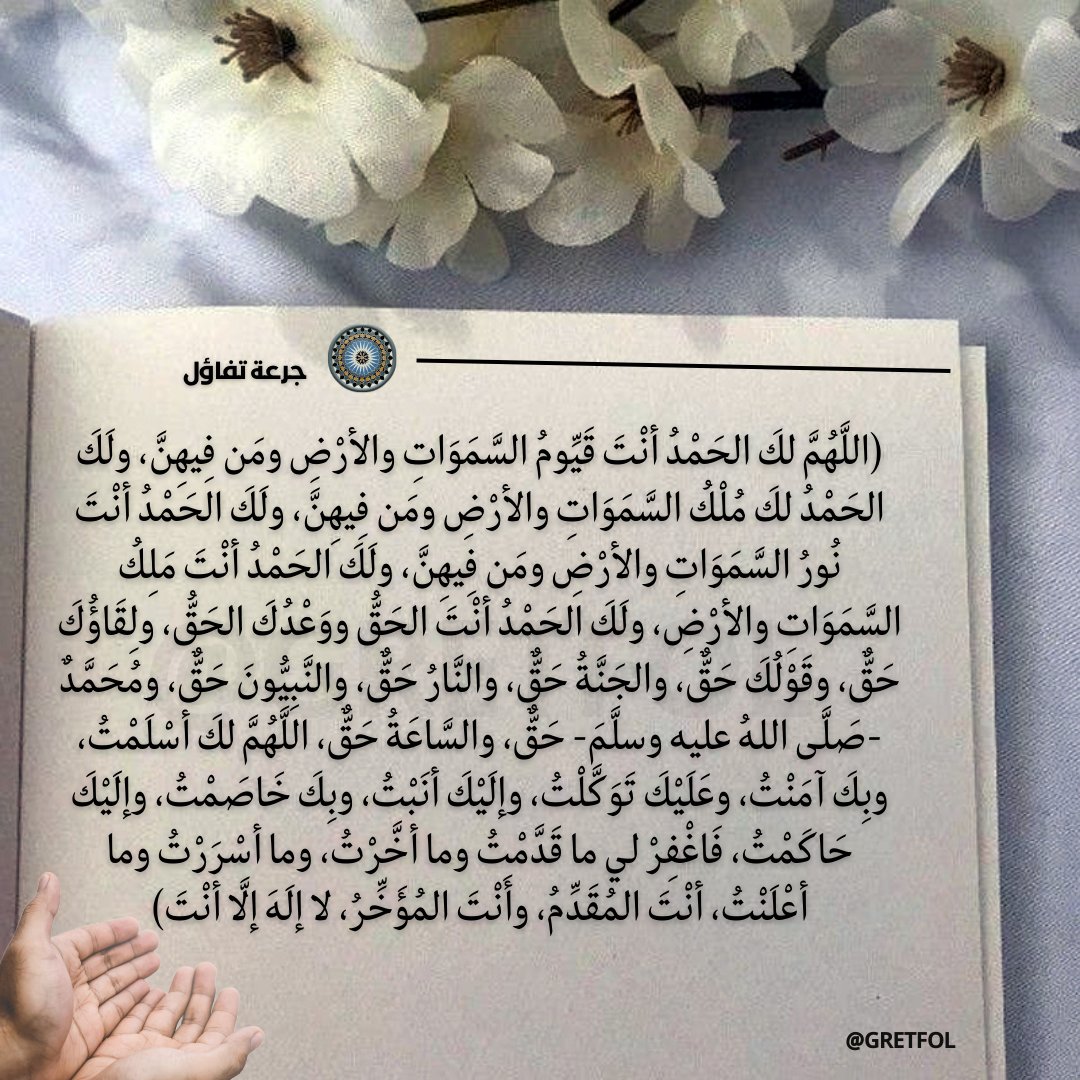 جرعة تفاؤل
(اللَّهُمَّ لكَ الحَمْدُ أنْتَ قَيِّومُ السَّمَوَاتِ والأرْضِ ومَن فِيهِنَّ، ولَكَ
الحَمْدُ لكَ مُلْكُ السَّمَوَاتِ والأرْضِ ومَن فيهِنَّ، ولَكَ الحَمْدُ أنْتَ
نُورُ السَّمَوَاتِ والأرْضِ ومَن فِيهِنَّ، ولَكَ الحَمْدُ أنْتَ مَلِكُ
السَّمَوَاتِ والأرْضِ، ولَكَ الحَمْدُ أنْتَ الحَقُّ ووَعْدُكَ الحَقُّ، ولِقَاؤُكَ
حَقٌّ، وقَوْلُكَ حَقٌّ، والجَنَّةُ حَقٌّ، والنَّارُ حَقٌّ، والنَّبِيُّونَ حَقٌّ، ومُحَمَّدٌ
-صَلَّى اللهُ عليه وسلَّمَ- حَقٌّ، والسَّاعَةُ حَقٌّ، اللَّهُمَّ لكَ أسْلَمْتُ،
وبِكَ آمَنْتُ، وعَلَيْكَ تَوَكَّلْتُ، وإلَيْكَ أنَبْتُ، وبِكَ خَاصَمْتُ، وإلَيْكَ
حَاكَمْتُ، فَاغْفِرْ لي ما قَدَّمْتُ وما أخَّرْتُ، وما أسْرَرْتُ وما
أعْلَنْتُ، أنْتَ المُقَدِّمُ، وأَنْتَ المُؤَخِّرُ، لا إلَهَ إلَّا أنْتَ)
@GRETFOL